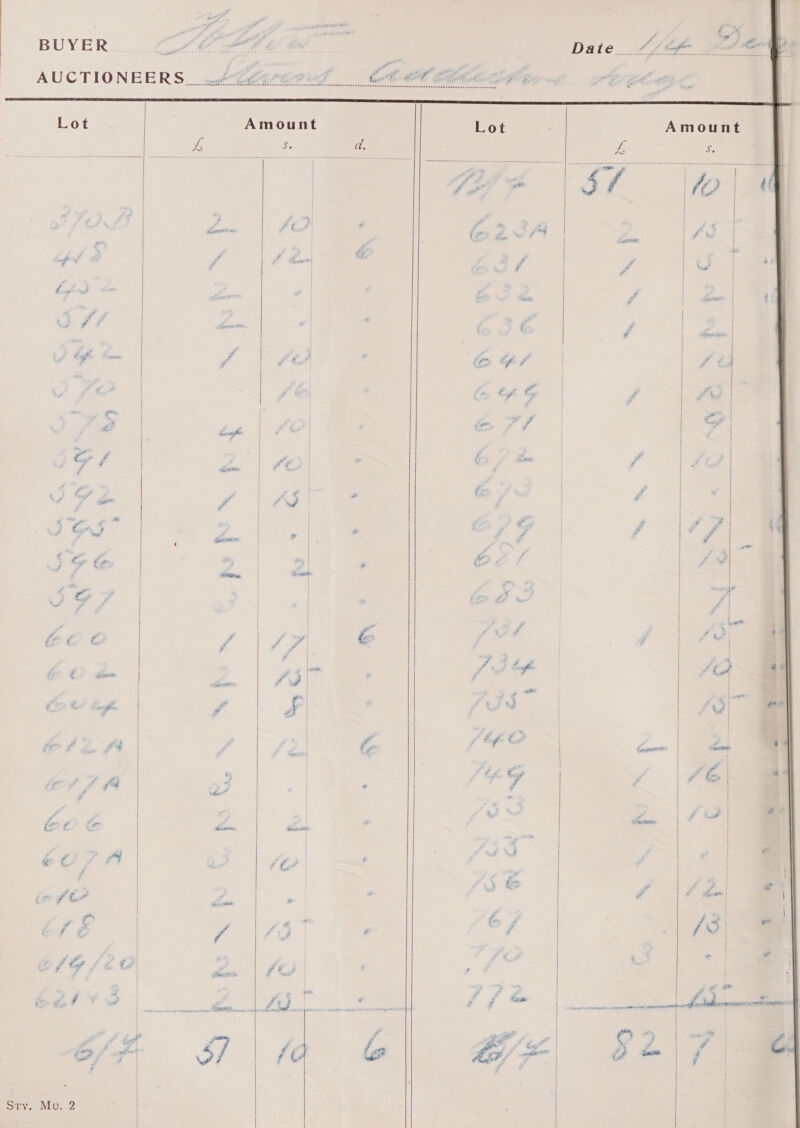 BUYER
Date 1/4 Dec
AUCTIONEERS Stevens
Lot Amount
£ s. d.
370B 2 10 -
418 1 12 6
452 2 - -
511 2 - -
542 1 10 -
570 16 -
578 4 10 -
591 2 10 -
592 1 15 -
595 2 - -
596 2 2 -
597 3 - -
600 1 17 6
602 2 15 -
604 1 8 -
612A 1 12 6
617A 3 - -
606 2 2 -
607A 3 10 -
610 2 - -
618 1 15 -
619/20 2 10 -
621 & 3 2 15 -
C/F 51 10 6
Lot Amount
£ s.
B/F 51 10
623A 2 15
631 1 5
632 1 2
636 1 2
641 10
649 1 10
671 9
672 1 10
673 1 -
679 1 17
681 15
683 7
731 1 15
734 10
735 15
740 2 2
749 1 16
753 2 10
755 1 - -
756 1 12
767 13
770 3 - -
772 15
C/F 82 7
Sty. Mu. 2